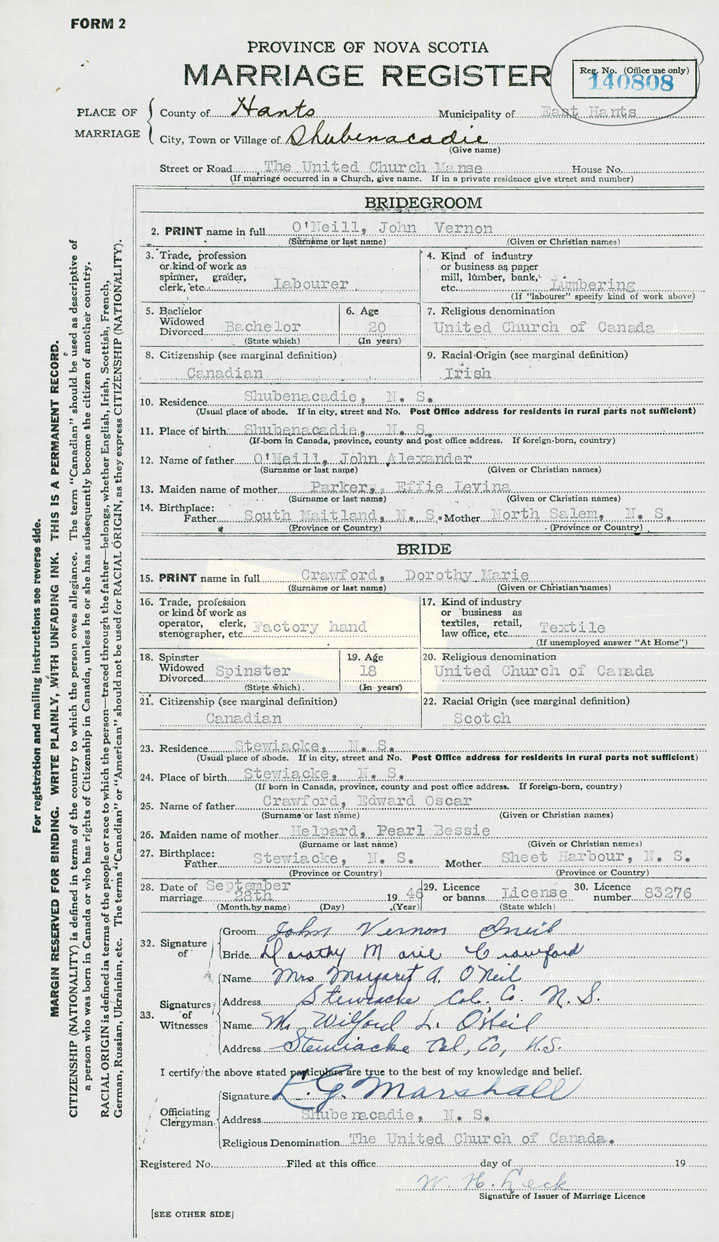 FORM 2
PROVINCE OF NOVA SCOTIA
MARRIAGE REGISTER
Reg. No. (Office use only)
140808
PLACE OF MARRIAGE
County of Hants Municipality of East Hants
City, Town or Village of Shubenacadie
(Give name)
Street or Road The United Church Manse House No.
(If marriage occurred in a Church, give name. If in a private residence give street and number)
BRIDEGROOM
2. PRINT name in full O'Neill, John Vernon
(Surname or last name) (Given or Christian names)
3. Trade, profession or kind of work as spinner, grader, clerk, etc. Labourer
4. Kind of industry or business as paper mill, lumber, bank, etc. Lumbering
(If "labourer" specify kind of work above)
5. Bachelor Widowed Divorced Bachelor
(State which)
6. Age 20
(In years)
7. Religious denomination
United Church of Canada
8. Citizenship (see marginal definition)
Canadian
9. Racial Origin (see marginal definition)
Irish
10. Residence Shubenacadie, N. S.
(Usual place of abode. If in city, street and No. Post Office address for residents in rural parts not sufficient)
11. Place of birth Shubenacadie, N. S.
(If born in Canada, province, county and post office address. If foreign-born, country)
12. Name of father O'Neill, John Alexander
(Surname or last name) (Given or Christian names)
13. Maiden name of mother Parker, Effie Levina
(Surname or last name) (Given or Christian names)
14. Birthplace:
Father South Maitland, N. S. Mother North Salem, N. S.
(Province or Country) (Province or Country)
BRIDE
15. PRINT name in full Crawford, Dorothy Marie
(Surname or last name) (Given or Christian names)
16. Trade, profession or kind of work as operator, clerk, stenographer, etc. Factory hand
17. Kind of industry or business as textiles, retail, law office, etc. Textile
(If unemployed answer "At Home")
18. Spinster Widowed Divorced Spinster
(State which)
19. Age 18
(In years)
20. Religious denomination
United Church of Canada
21. Citizenship (see marginal definition)
Canadian
22. Racial Origin (see marginal definition)
Scotch
23. Residence Stewiacke, N. S.
(Usual place of abode. If in city, street and No. Post Office address for residents in rural parts not sufficient)
24. Place of birth Stewiacke, N. S.
(If born in Canada, province, county and post office address. If foreign-born, country)
25. Name of father Crawford, Edward Oscar
(Surname or last name) (Given or Christian names)
26. Maiden name of mother Helpard, Pearl Bessie
(Surname or last name) (Given or Christian names)
27. Birthplace:
Father Stewiacke, N. S. Mother Sheet Harbour, N. S.
(Province or Country) (Province or Country)
28. Date of marriage September 28th 1946
(Month by name) (Day) (Year)
29. Licence or banns License
(State which)
30. Licence number 83276
32. Signature of
Groom John Vernon Oneil
Bride Dorothy Marie Crawford
33. Signatures of Witnesses
Name Mrs. Margaret A. O'Neil
Address Stewiacke Col. Co. N. S.
Name Mr. Wilford L. O'Neil
Address Stewiacke Col, Co, N.S.
I certify the above stated particulars are true to the best of my knowledge and belief.
Officiating Clergyman
Signature Marshall
Address Shubenacadie, N. S.
Religious Denomination The United Church of Canada.
Registered No. Filed at this office day of 19
W. H.
Signature of Issuer of Marriage Licence
[SEE OTHER SIDE]
For registration and mailing instructions see reverse side.
MARGIN RESERVED FOR BINDING. WRITE PLAINLY, WITH UNFADING INK. THIS IS A PERMANENT RECORD.
CITIZENSHIP (NATIONALITY) is defined in terms of the country to which the person owes allegiance. The term "Canadian" should be used as descriptive of
a person who was born in Canada or who has rights of Citizenship in Canada, unless he or she has subsequently become the citizen of another country.
RACIAL ORIGIN is defined in terms of the people or race to which the person—traced through the father—belongs, whether English, Irish, Scottish, French,
German, Russian, Ukrainian, etc. The terms "Canadian" or "American" should not be used for RACIAL ORIGIN, as they express CITIZENSHIP (NATIONALITY).